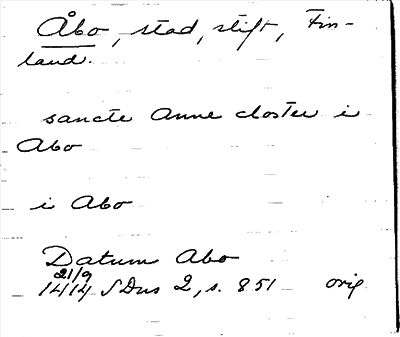 Åbo, stad, stift, Fin-
land.
sancte Anne closter i
Abo
i Abo
Datum Abo
21/9
1414 SDns 2, s. 851 orig